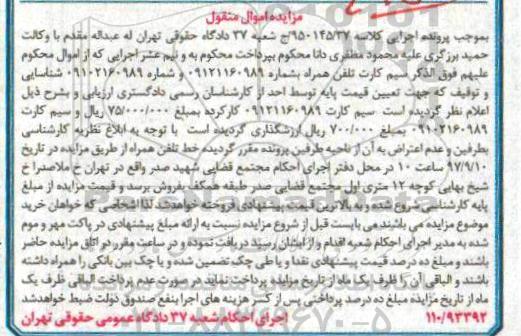 مزایده اموال منقول
بموجب پرونده اجرایی کلاسه ۹۵۰۱۴۵/۳۷/ج شعبه ۳۷ دادگاه حقوقی تهران له عبداله مقدم با وکالت
حمید برزگری علیه محمود مظفری دانا محکوم بپرداخت محکوم به و نیم عشر اجرایی که از اموال محکوم
علیهم فوق الذکر سیم کارت تلفن همراه بشماره ۰۹۱۲۱۱۶۰۹۸۹ و شماره ۰۹۱۰۲۱۶۰۹۸۹ شناسایی
و توقیف که جهت تعیین قیمت پایه توسط احد از کارشناسان رسمی دادگستری ارزیابی و بشرح ذیل
اعلام نظر گردیده است سیم کارت ۰۹۱۲۱۱۶۰۹۸۹ کارکرده بمبلغ ۷۵/۰۰۰/۰۰۰ ریال و سیم کارت
۰۹۱۰۲۱۶۰۹۸۹ بمبلغ ۷۰۰/۰۰۰ ریال ارزشگذاری گردیده است با توجه به ابلاغ نظریه کارشناسی
بطرفین و عدم اعتراض به آن از ناحیه طرفین پرونده مقرر گردیده خط تلفن همراه از طریق مزایده در تاریخ
۹۷/۹/۱۰ ساعت ۱۰ در محل دفتر اجرای احکام مجتمع قضایی شهید صدر واقع در تهران خ ملاصدرا خ
شیخ بهایی کوچه ۱۲ متری اول مجتمع قضایی صدر طبقه همکف بفروش برسد و قیمت مزایده از مبلغ
پایه کارشناسی شروع شده و به بالاترین قیمت پیشنهادی فروخته خواهدشد لذا اشخاصی که خواهان خرید
موضوع مزایده می باشند می بایست قبل از شروع مزایده نسبت به ارائه مبلغ پیشنهادی در پاکت مهر و موم
شده به مدیر اجرای احکام شعبه اقدام و از ایشان رسید دریافت نموده و در ساعت مقرر در اتاق مزایده حاضر
باشند و مبلغ ده درصد قیمت پیشنهادی نقدا و یا طی چک تضمین شده و یا چک بین بانکی را همراه داشته
باشند و الباقی آن را ظرف یک ماه از تاریخ مزایده پرداخت نماید در صورت عدم پرداخت الباقی ظرف یک
ماه از تاریخ مزایده مبلغ ده درصد پرداختی پس از کسر هزینه های اجرا بنفع صندوق دولت ضبط خواهدشد
۱۱۰/۹۳۳۹۲ اجرای احکام شعبه ۳۷ دادگاه عمومی حقوقی تهران